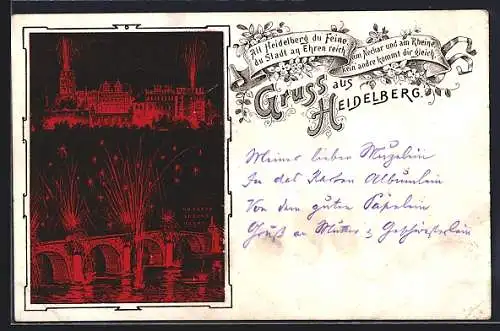 Alt Heidelberg du Feine,
du Stadt an Ehren reich,
am Neckar und am Rheine
kein andre kommt dir gleich.
Gruss aus
HEIDELBERG.
Meiner lieben
In das Karten Albumlein
Von dem guten Papalein
Gruß an Mutter & Geschwisterlein